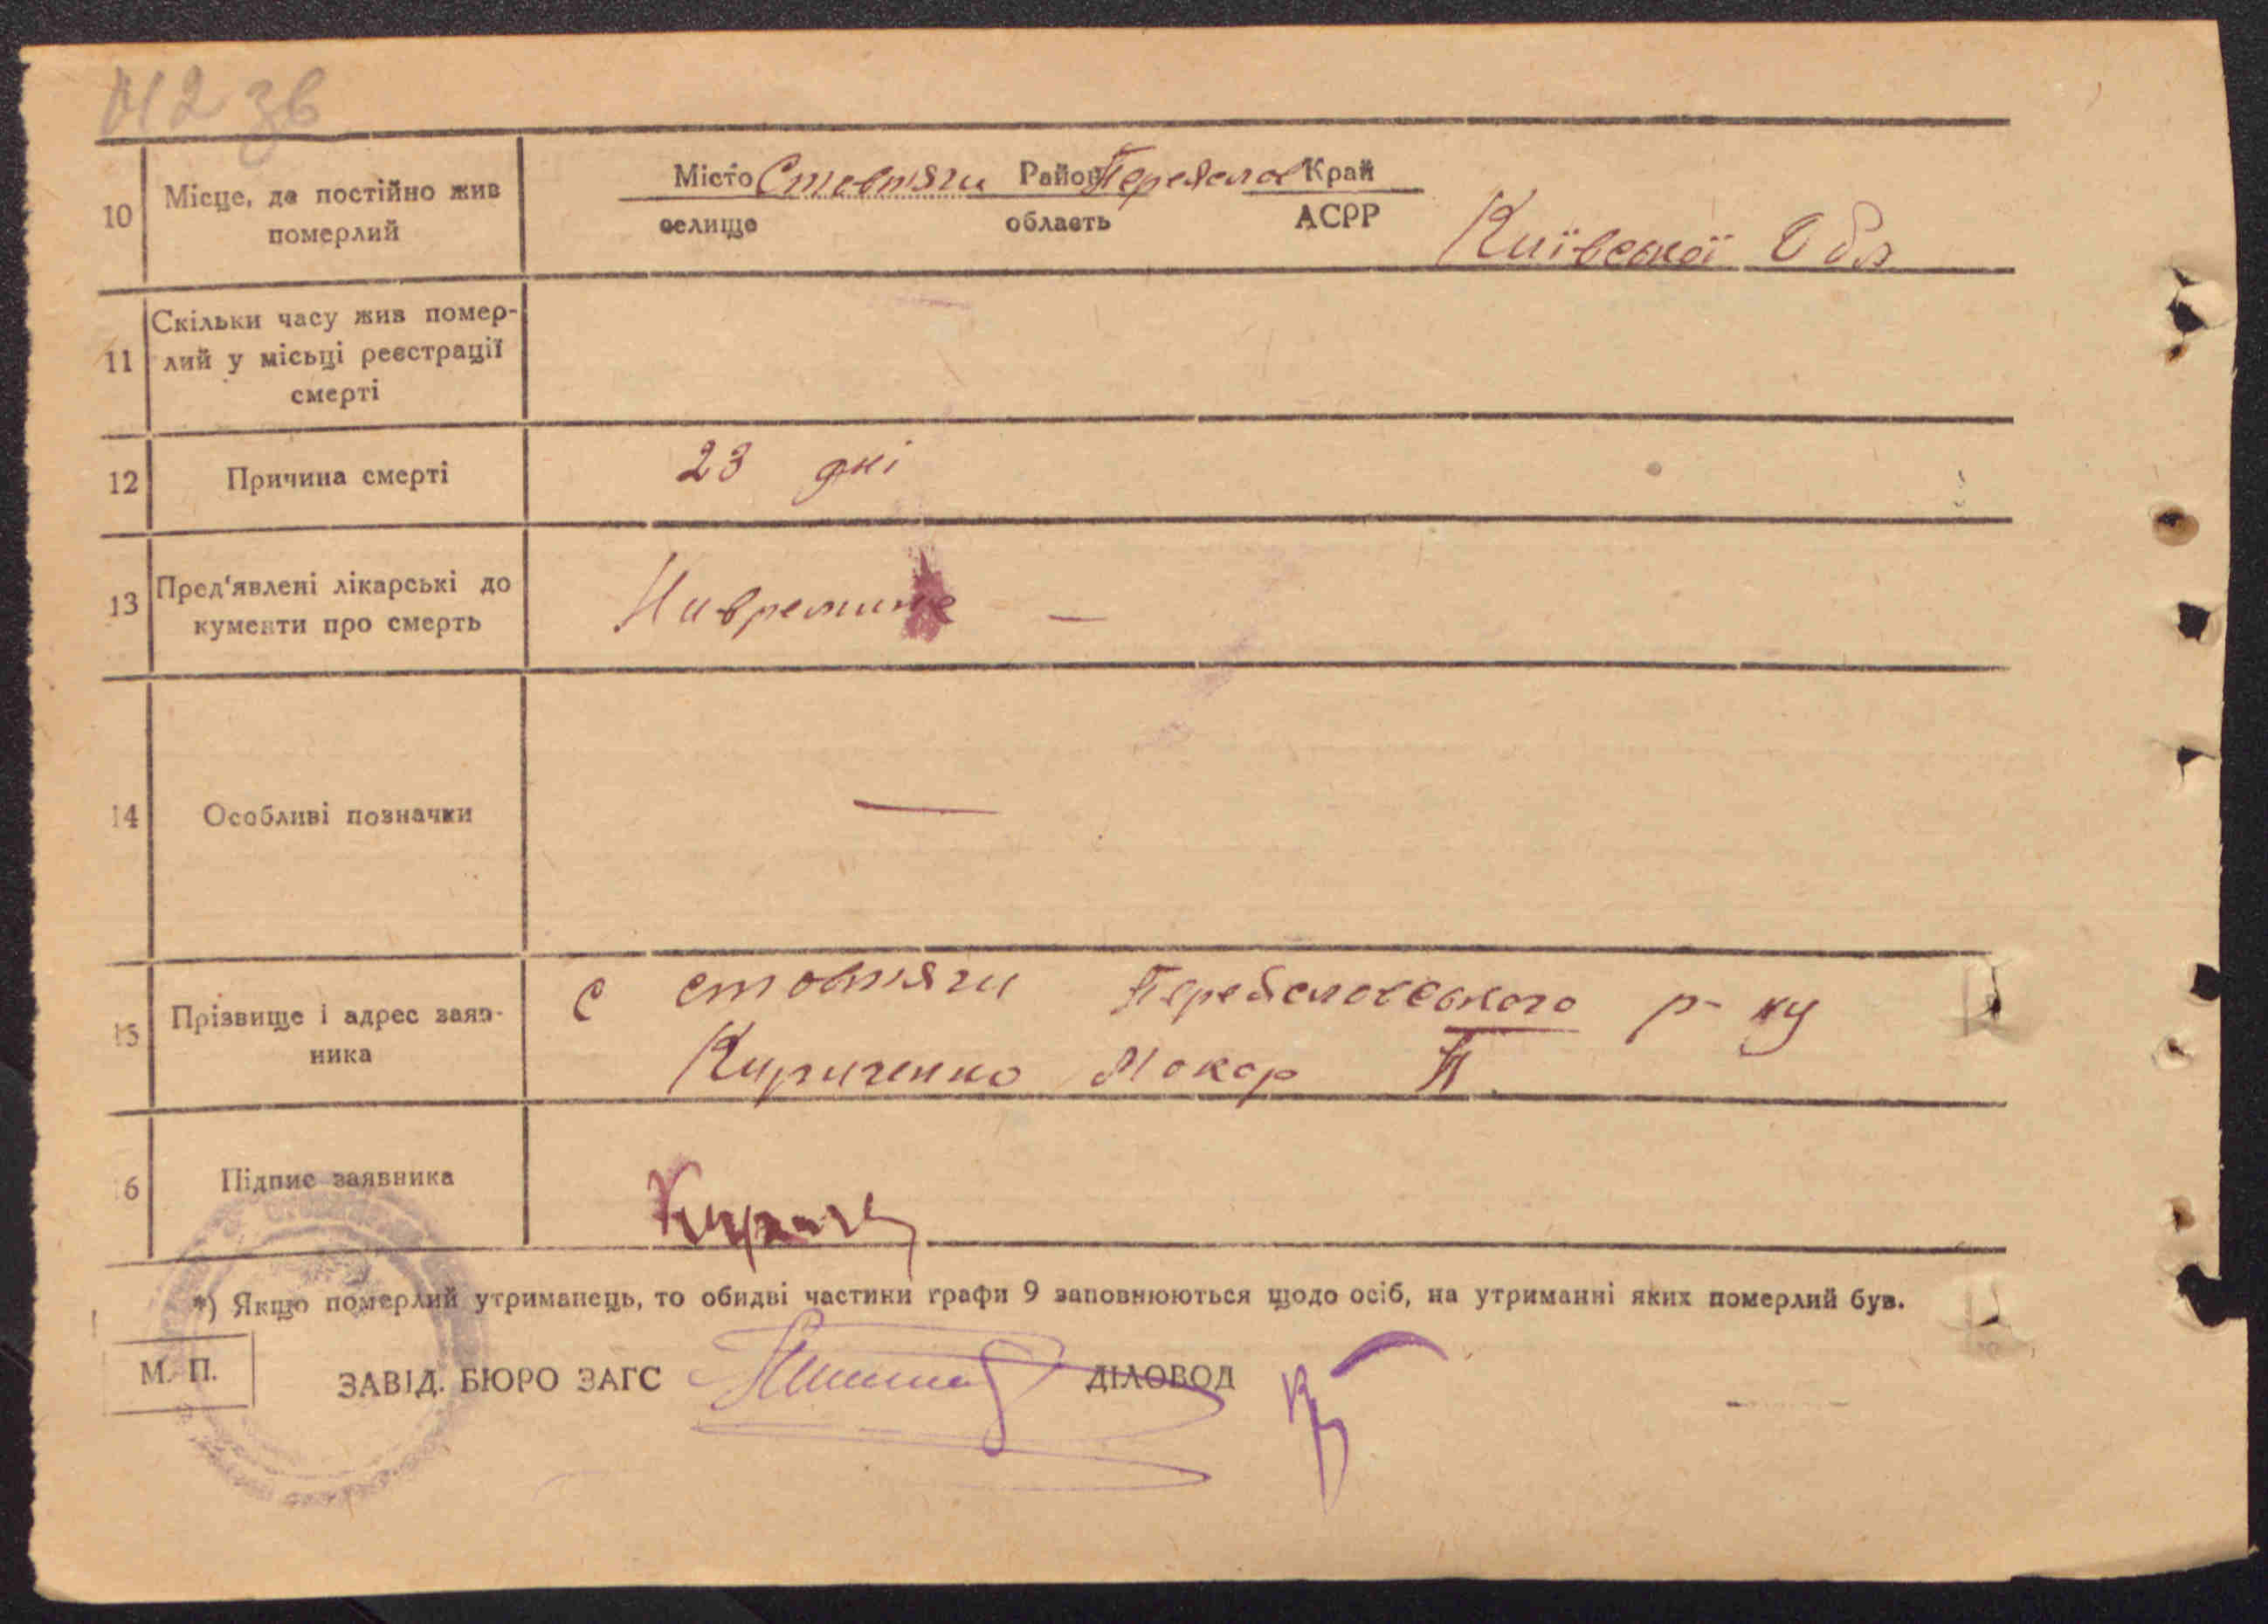 112 зв
10 Місце, де постійно жив померлий
Місто Стовпяги Район Переяслов Край
селище область АСРР
Київської Обл
11 Скільки часу жив помер-
лий у місьці реєстрації
смерті
12 Причина смерті 23 дні
13 Пред'явлені лікарські до
кументи про смерть
—
14 Особливі позначки —
15 Прізвище і адрес заяв-
ника
с стовпяги Переясловського р-ну
Кириченко Макар П
16 Підпис заявника
*) Якщо померлий утриманець, то обидві частини графи 9 заповнюються щодо осіб, на утриманні яких померлий був.
М. П. ЗАВІД. БЮРО ЗАГС ДІЛОВОД